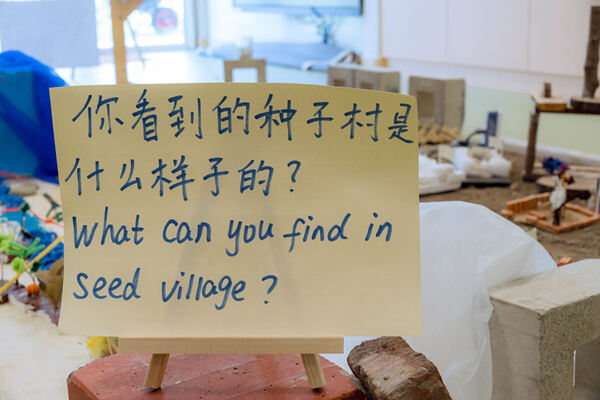 你看到的种子村是
什么样子的?
What can you find in
seed village?